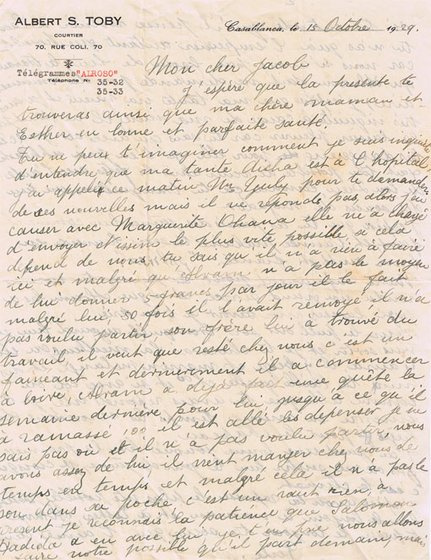 ALBERT S. TOBY
COURTIER
70, RUE COLI, 70
Télégrammes "ALROSO"
Téléphone No 35-32
35-33
Casablanca, le 15 Octobre 1929.
Mon cher Jacob
J'espère que la présente te
trouveras ainsi que ma chère maman et
Esther en bonne et parfaite santé.
Tu ne peux t'imaginer comment je suis inquiète
d'entendre que ma tante Aicha est à l'hopital
appelé ce matin Mr pour te demander
de ces nouvelles mais il ne réponde pas, alors j'ai
causer avec Marguerite Ohana elle m'a chargé
d'envoyer Nissim le plus vite possible si cela
depend de nous, tu sais qu'il n'a rien à faire
ici et malgré qu'Avram n'a plus le moyen
de lui donner 5 francs par jour il le fait
malgré lui, 20 fois il l'avait renvoyé il n'a
pas voulu partir, son frère lui a trouvé du
travail il veut que resté chez nous c'est un
faineant et dernièrement il a commencer
à boire, Avram a déjà fait une quête la
semaine dernière pour lui, jusqu'a ce qu'il
a ramassé 100 il est allé les depenser je ne
sais pas où et il n'a pas voulu partir, nous
avons assez de lui il vient manger chez nous de
temps en temps et malgré cela il n'a pas le
sou dans sa poche, c'est un vaut rien, à
present je reconnais la patience que Salomon
Hadida a eu avec lui, nous allons
notre possible qu'il part demain, mais